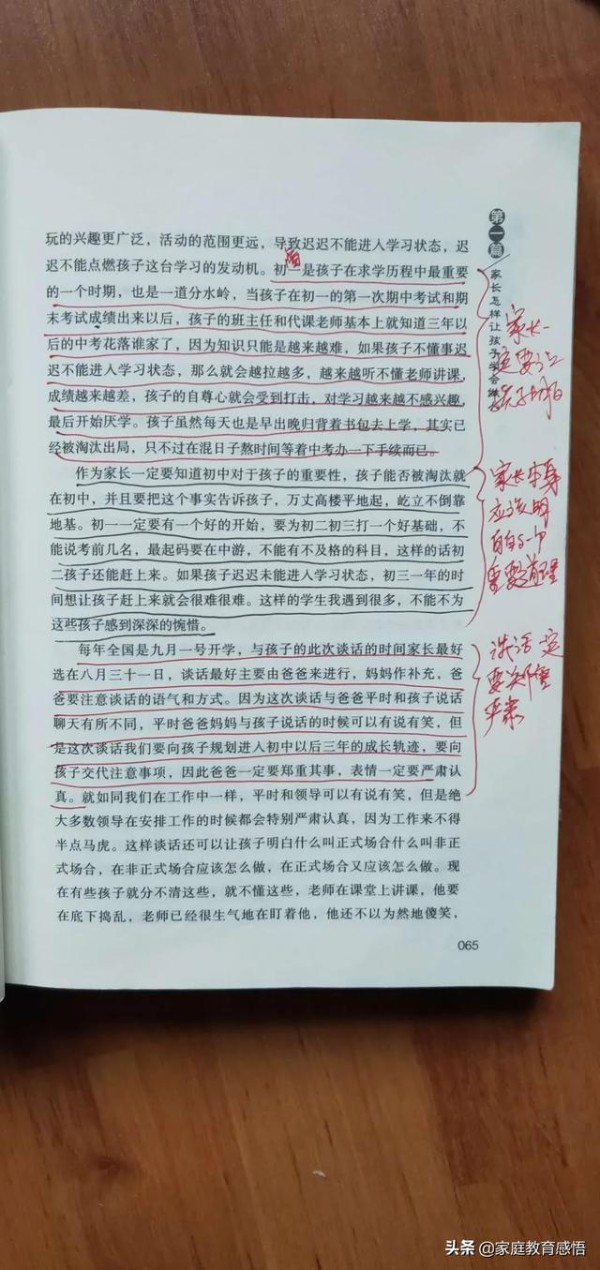 第一篇
家长怎样让孩子学会
玩的兴趣更广泛，活动的范围更远，导致迟迟不能进入学习状态，迟
迟不能点燃孩子这台学习的发动机。初一是孩子在求学历程中最重要
的一个时期，也是一道分水岭，当孩子在初一的第一次期中考试和期
末考试成绩出来以后，孩子的班主任和代课老师基本上就知道三年以
后的中考花落谁家了，因为知识只能是越来越难，如果孩子不懂事迟
迟不能进入学习状态，那么就会越拉越多，越来越听不懂老师讲课，
成绩越来越差，孩子的自尊心就会受到打击，对学习越来越不感兴趣，
最后开始厌学。孩子虽然每天也是早出晚归背着书包去上学，其实已
经被淘汰出局，只不过在混日子熬时间等着中考办一下手续而已。
作为家长一定要知道初中对于孩子的重要性，孩子能否被淘汰就
在初中，并且要把这个事实告诉孩子，万丈高楼平地起，屹立不倒靠
地基。初一一定要有一个好的开始，要为初二初三打一个好基础，不
能说考前几名，最起码要在中游，不能有不及格的科目，这样的话初
二孩子还能赶上来。如果孩子迟迟未能进入学习状态，初三一年的时
间想让孩子赶上来就会很难很难。这样的学生我遇到很多，不能不为
这些孩子感到深深的惋惜。
每年全国是九月一号开学，与孩子的此次谈话的时间家长最好
选在八月三十一日，谈话最好主要由爸爸来进行，妈妈作补充，爸
爸要注意谈话的语气和方式。因为这次谈话与爸爸平时和孩子说话
聊天有所不同，平时爸爸妈妈与孩子说话的时候可以有说有笑，但
是这次谈话我们要向孩子规划进入初中以后三年的成长轨迹，要向
孩子交代注意事项，因此爸爸一定要郑重其事，表情一定要严肃认
真。就如同我们在工作中一样，平时和领导可以有说有笑，但是绝
大多数领导在安排工作的时候都会特别严肃认真，因为工作来不得
半点马虎。这样谈话还可以让孩子明白什么叫正式场合什么叫非正
式场合，在非正式场合应该怎么做，在正式场合又应该怎么做。现
在有些孩子就分不清这些，就不懂这些，老师在课堂上讲课，他要
在底下捣乱，老师已经很生气地在盯着他，他还不以为然地傻笑，
065
家长一
定要让
孩子明白
家长本身
应该明
白的一个
重要道理
谈话一定
要郑重
严肃
头条 @家庭教育感悟